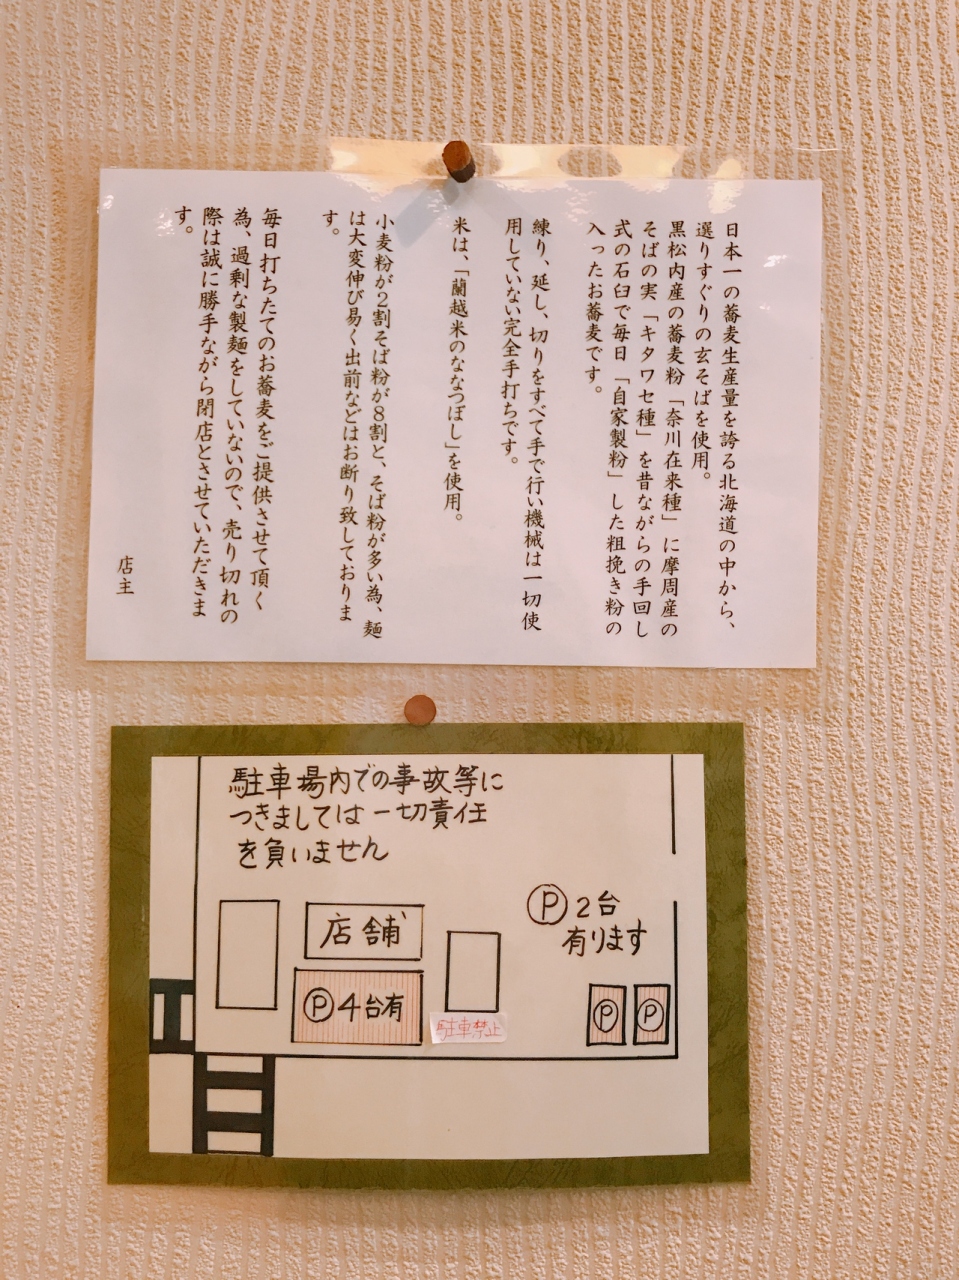 日本一の蕎麦生産量を誇る北海道の中から、
選りすぐりの玄そばを使用。
黒松内産の蕎麦粉「奈川在来種」に摩周産の
そばの実「キタワセ種」を昔ながらの手回し
式の石臼で毎日「自家製粉」した粗挽き粉の
入ったお蕎麦です。
練り、延し、切りをすべて手で行い機械は一切使
用していない完全手打ちです。
米は、「蘭越米のななつぼし」を使用。
小麦粉が2割そば粉が8割と、そば粉が多い為、麺
は大変伸び易く出前などはお断り致しておりま
す。
毎日打ちたてのお蕎麦をご提供させて頂く
為、過剰な製麺をしていないので、売り切れの
際は誠に勝手ながら閉店とさせていただきま
す。
店主
駐車場内での事故等に
つきましては一切責任
を負いません
Ⓟ2台
有ります
店舗
Ⓟ4台有
駐車禁止
Ⓟ
Ⓟ